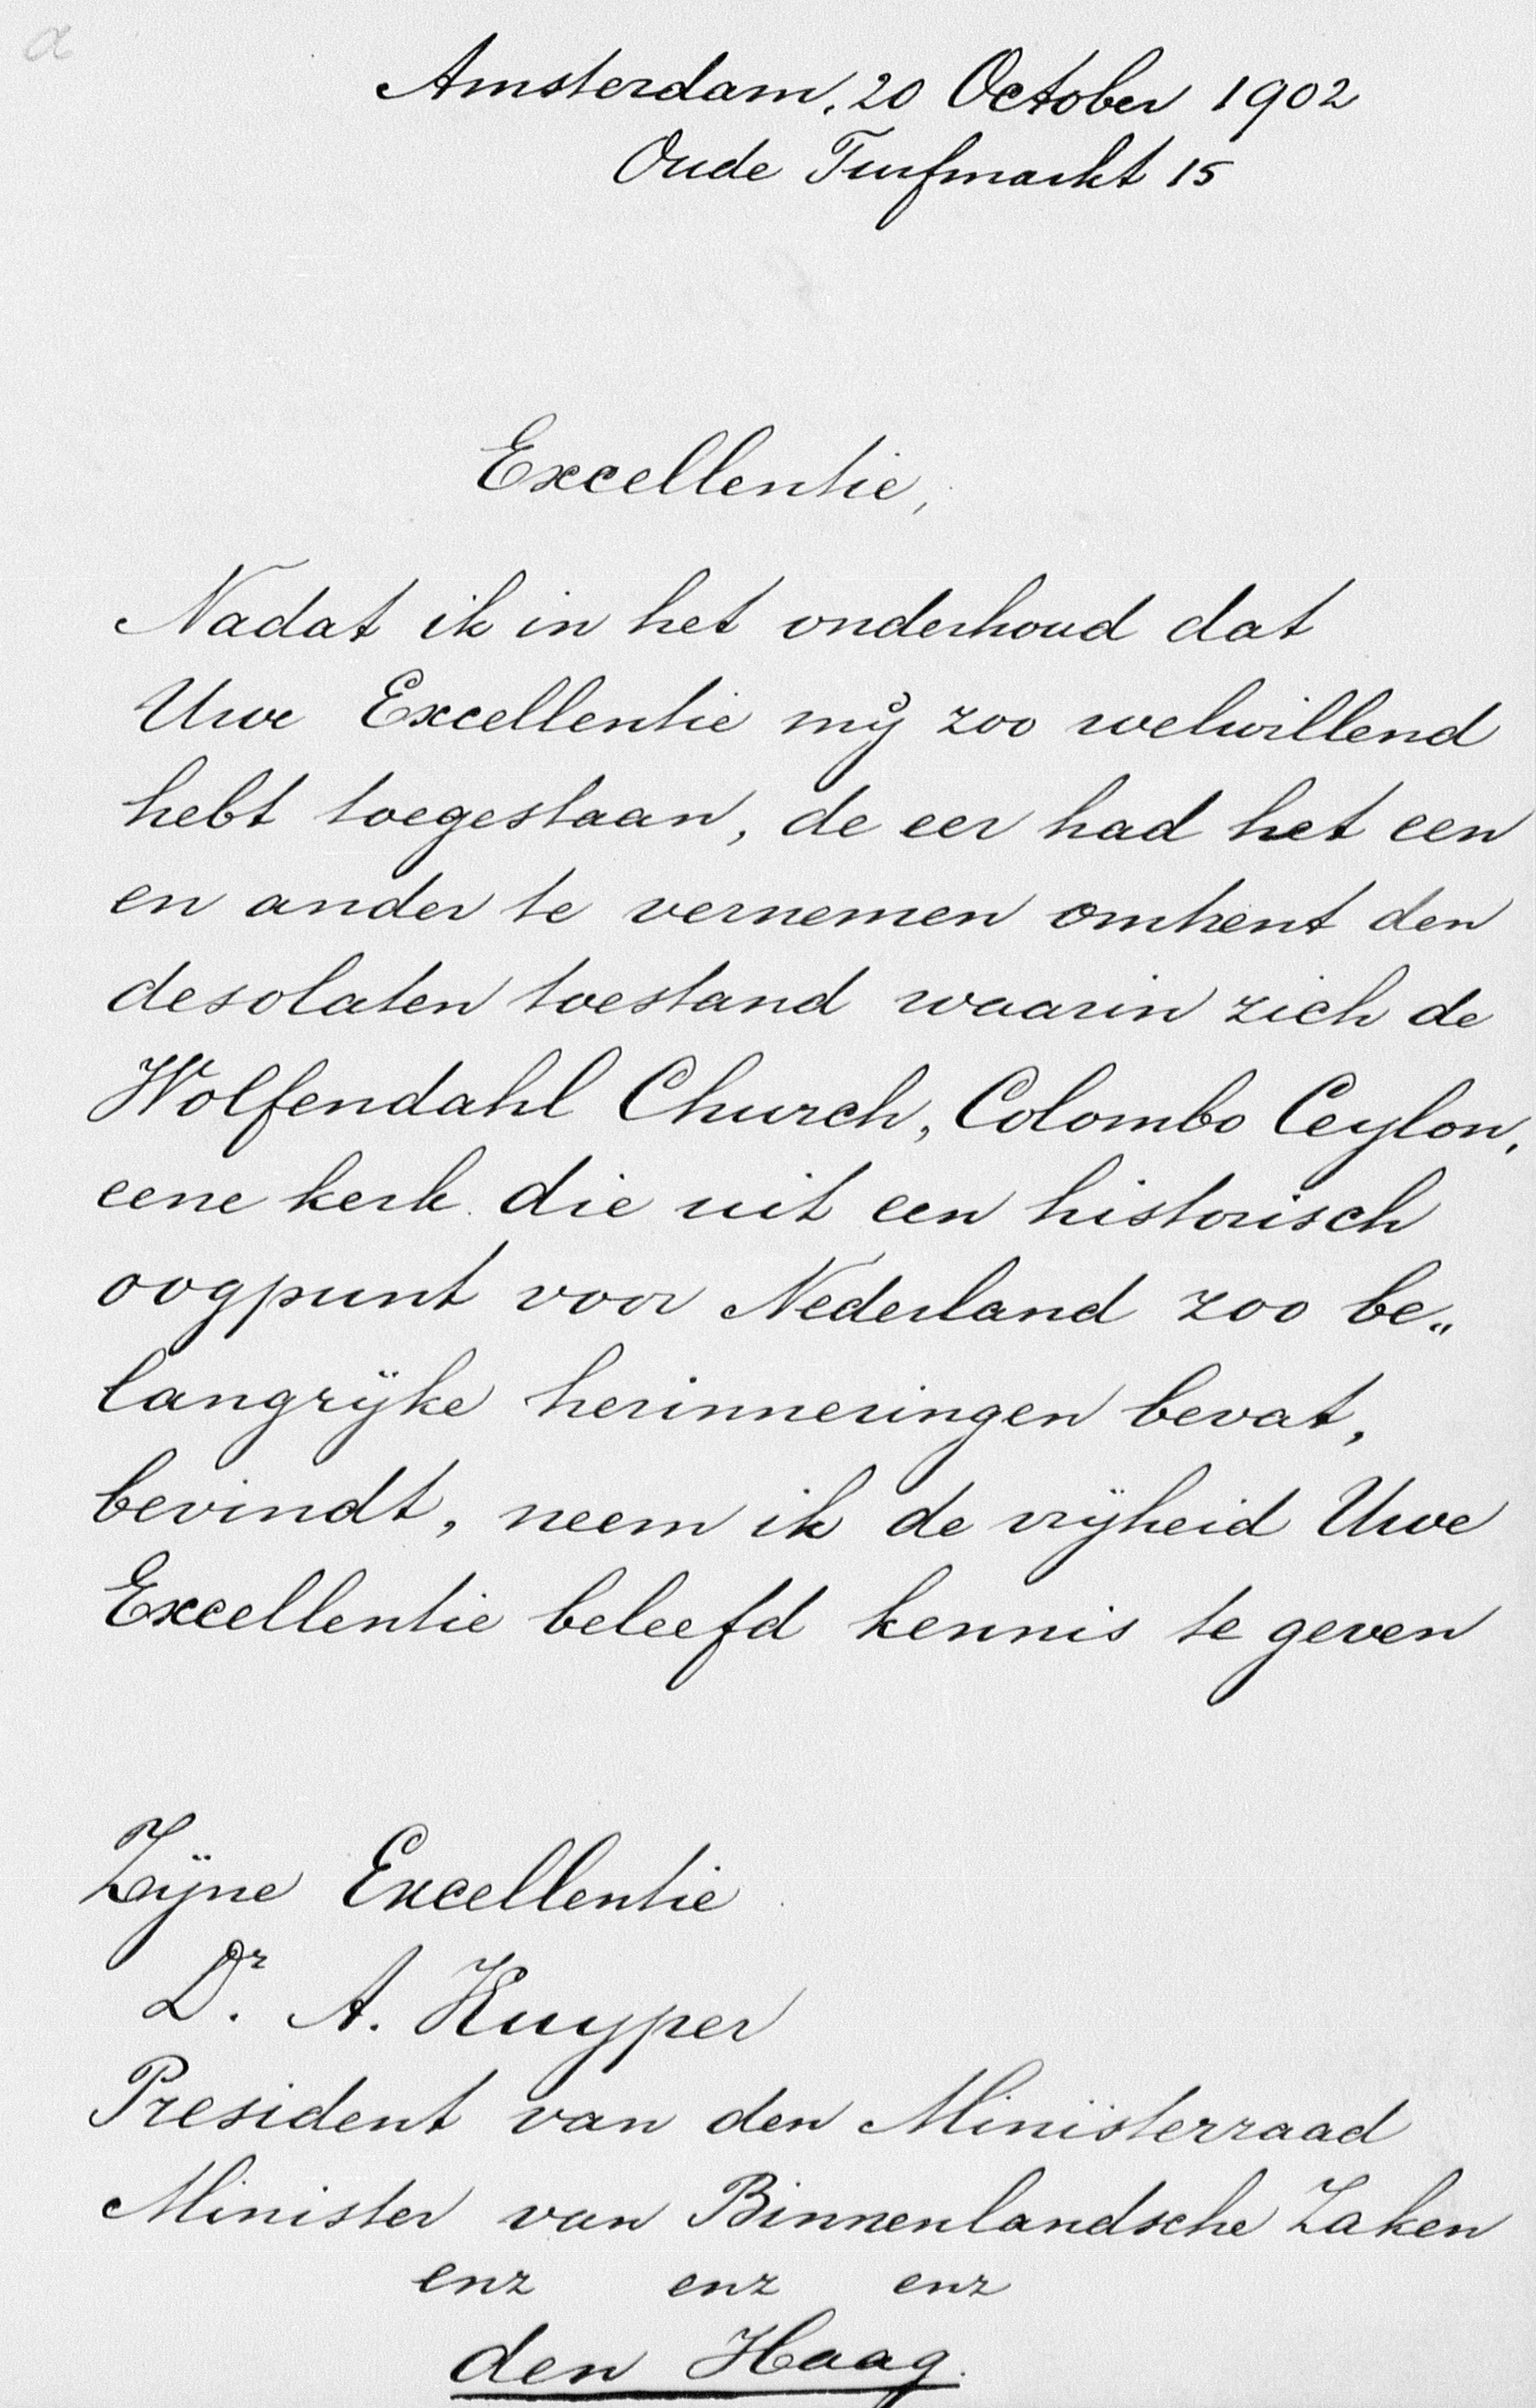 a
Amsterdam, 20 October 1902
Oude Turfmarkt 15
Excellentie,
Nadat ik in het onderhoud dat
Uwe Excellentie mij zoo welwillend
hebt toegestaan, de eer had het een
en ander te vernemen omtrent den
desolaten toestand waarin zich de
Wolfendahl Church, Colombo Ceylon,
eene kerk die uit een historisch
oogpunt voor Nederland zoo be„
langrijke herinneringen bevat,
bevindt, neem ik de vrijheid Uwe
Excellentie beleefd kennis te geven
Zijne Excellentie
Dr. A. Kuyper
President van den Ministerraad
Minister van Binnenlandsche Zaken
enz enz enz
den Haag.